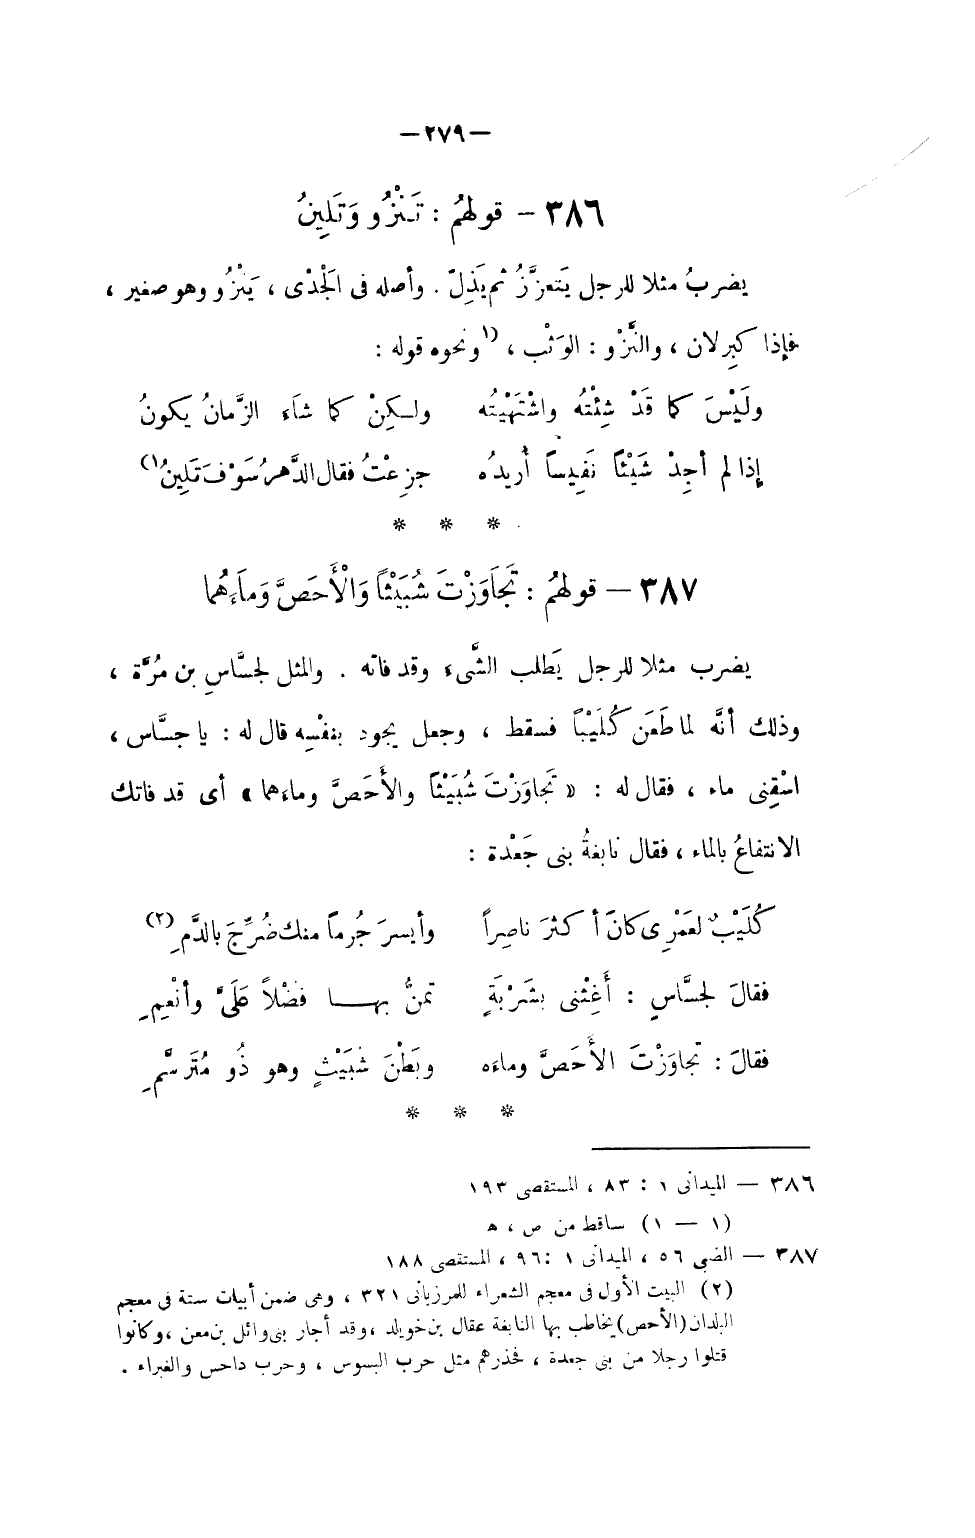 —٢٧٩—
٣٨٦ – قولهُم : تَنْزُو وَتَلِينُ
يضربُ مثلا للرجل يَتعزَّزُ ثم يَذِلّ . وأصله فى الجَدْى ، يَنْزُو وهو صغير ،
فإذا كبِر لان ، والنَّزْو : الوَثْب ، (١ونحوه قوله :
ولَيْسَ كما قَدْ شِئْتُه واشْتَهَيْتُه ولـكِنْ كما شاءَ الزَّمانُ يكونُ
إذا لم أجِدْ شَيْئاً نَفِيساً أُريدُه جزِعْتُ فقال الدَّهرُ سَوْفَ تَلِينُ١)
* * *
٣٨٧ — قولهُم : تَجَاوَزْتَ شُبَيْثاً وَالْأَحَصَّ وَمَاءَهُما
يضرب مثلا للرجل يَطلب الشَّىء وقد فاته . والمثل لجسَّاسِ بن مُرَّة ،
وذلك أنَّه لما طَعَن كُلَيْباً فسقط ، وجعل يجود بنفْسِه قال له : يا جسَّاس ،
اسْقِنى ماء ، فقال له : « تَجاوَزْتَ شُبَيْثاً والأَحَصَّ وماءهما » أى قد فاتك
الانتفاعُ بالماء ، فقال نابغةُ بنى جَعْدة :
كُلَيْبٌ لعَمْرِى كانَ أكثرَ ناصِراً وأيسرَ جُرماً منك ضُرِّجَ بالدَّمِ(٢)
فقالَ لجسَّاسٍ : أَغِثْنى بشَرْبَةٍ تمنُّ بهـــا فضْلاً عَلَىَّ وأنْعِمِ
فقالَ : تجاوَزْتَ الأَحَصَّ وماءَه وبَطْنَ شُبَيْثٍ وهو ذُو مُتَرسَّمِ
* * *
٣٨٦ — الميدانى ١ : ٨٣ ، المستقصى ١٩٣
(١ — ١) ساقط من ص ، ه
٣٨٧ — الضبى ٥٦ ، الميدانى ١ : ٩٦ ، المستقصى ١٨٨
(٢) البيت الأول فى معجم الشعراء للمرزبانى ٣٢١ ، وهى ضمن أبيات ستة فى معجم
البلدان (الأحص) يخاطب بها النابغة عقال بن خويلد ، وقد أجار بنى وائل بن معن ، وكانوا
قتلوا رجلا من بنى جعدة ، فحذرهم مثل حرب البسوس ، وحرب داحس والغبراء .